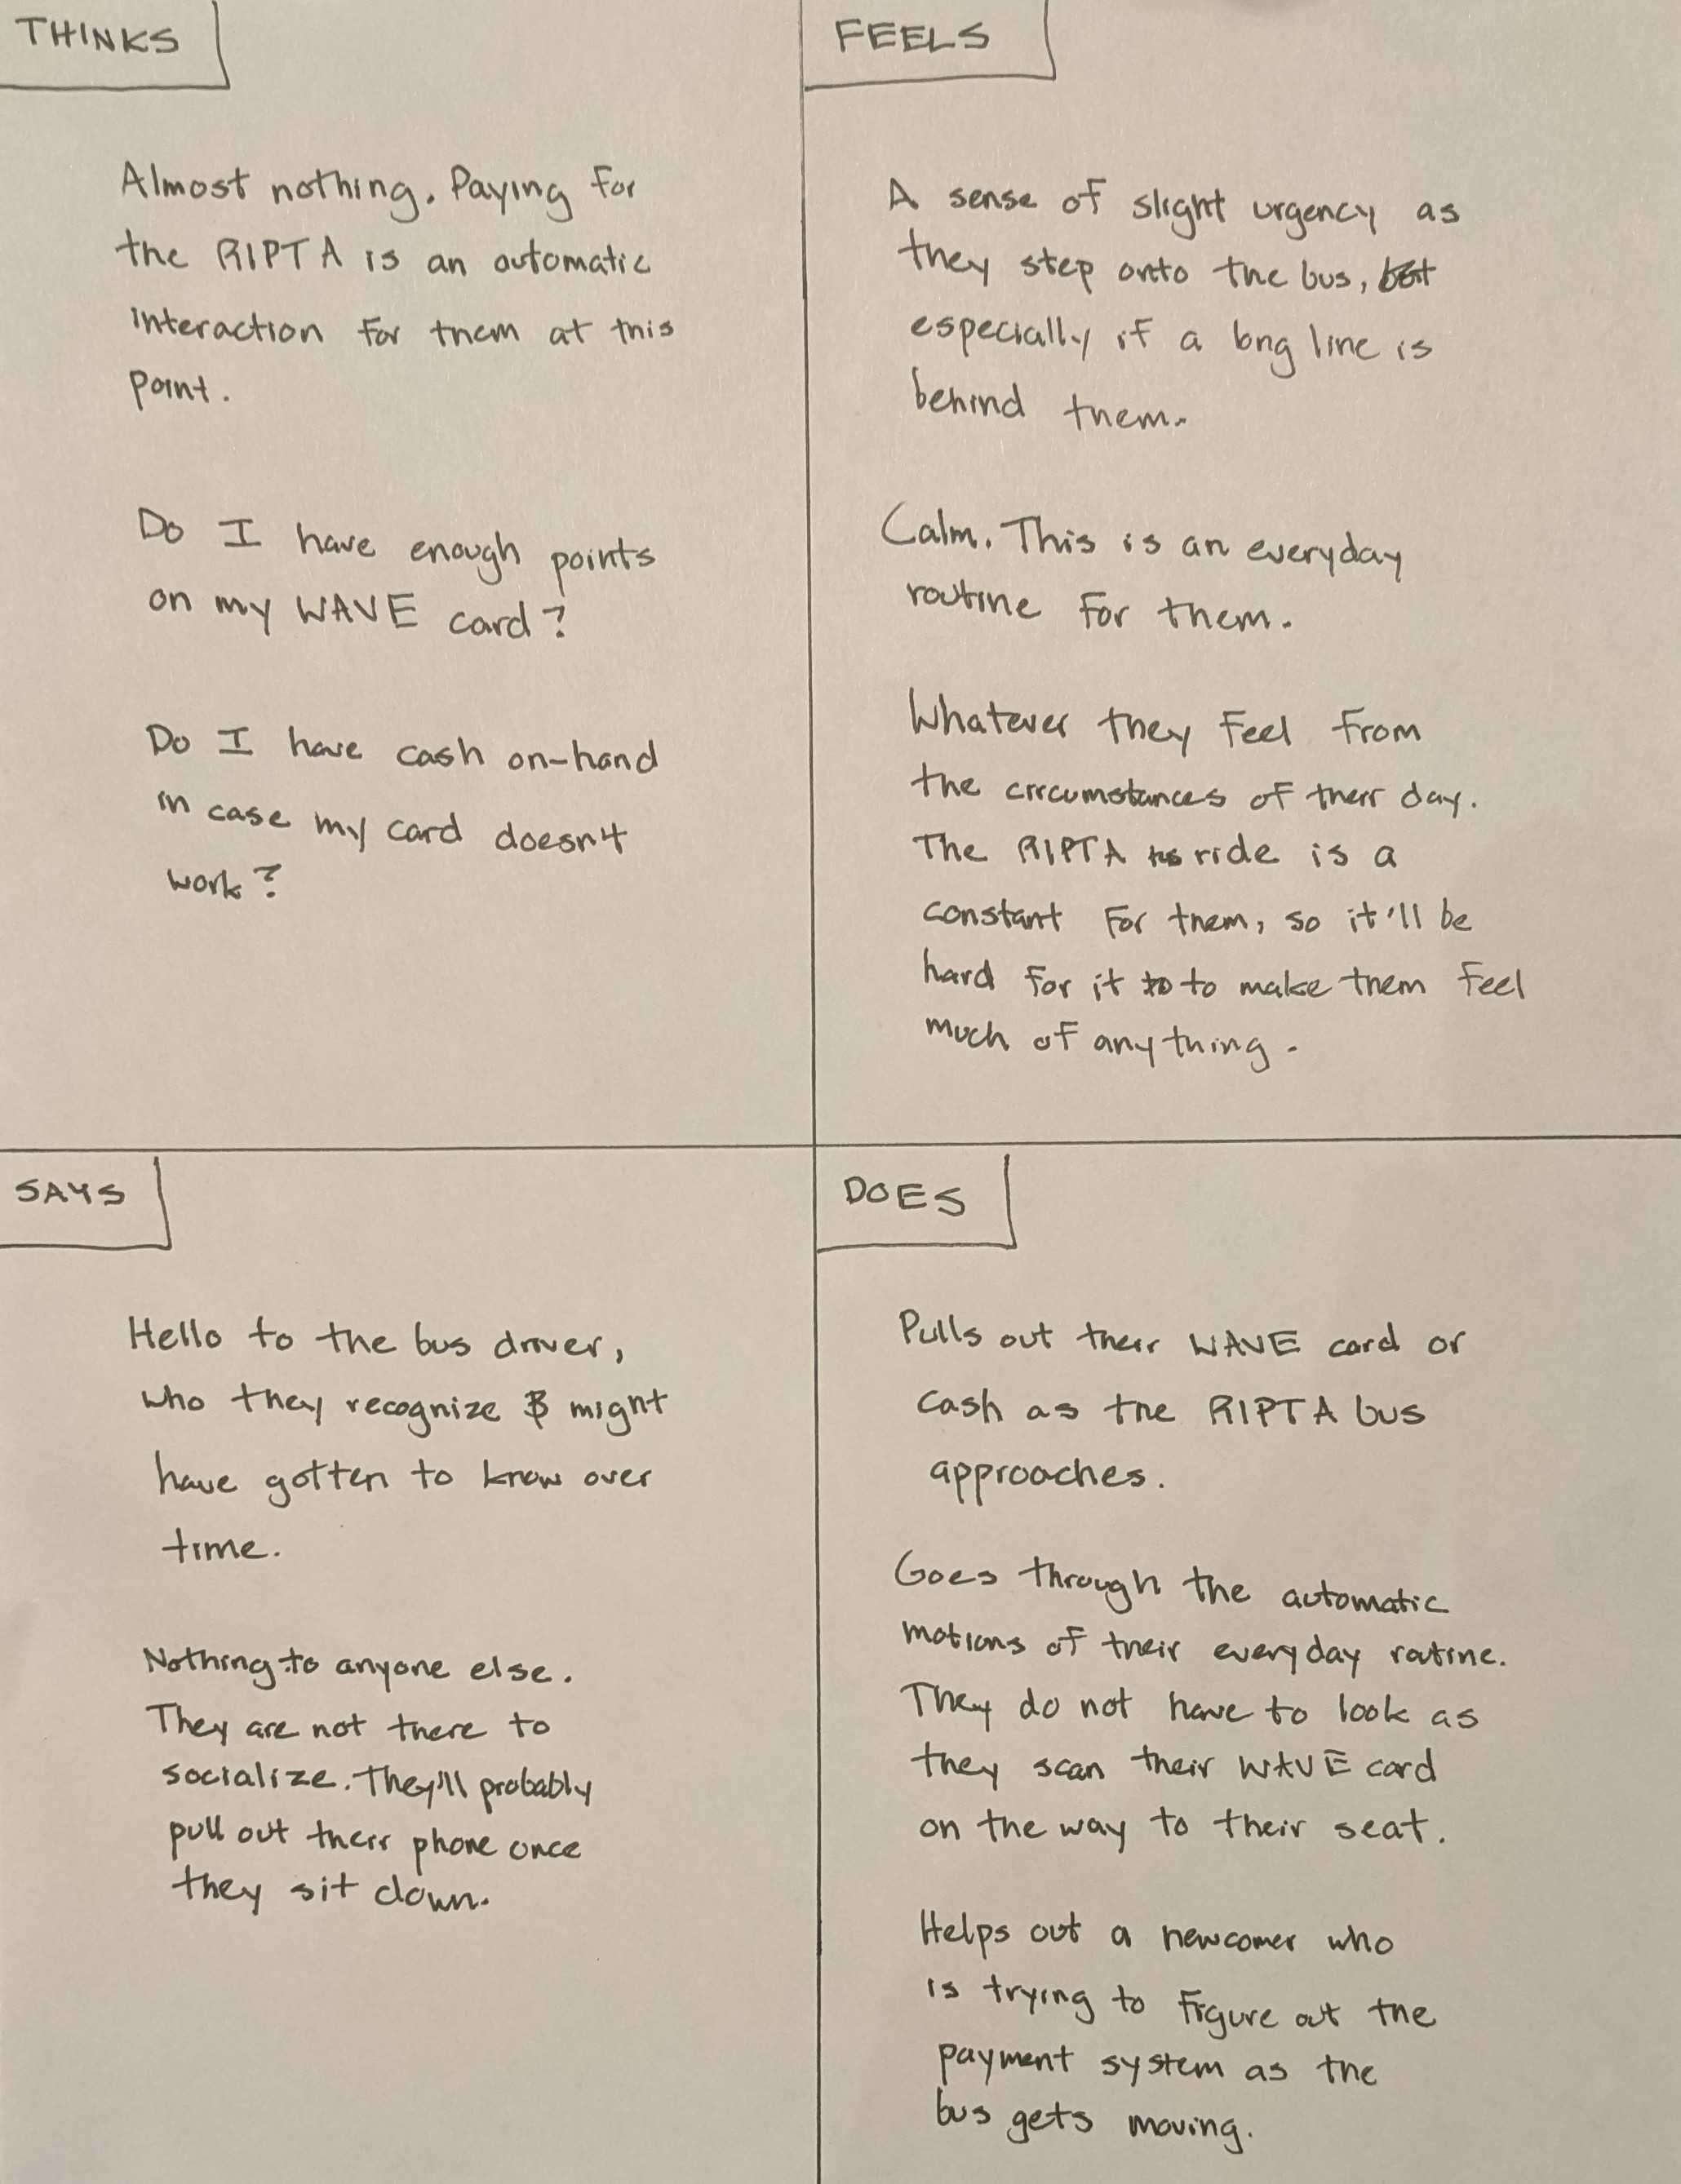 THINKS
Almost nothing. Paying for
the RIPTA is an automatic
interaction for them at this
point.
Do I have enough points
on my WAVE card?
Do I have cash on-hand
in case my card doesn't
work?
FEELS
A sense of slight urgency as
they step onto the bus,
especially if a long line is
behind them.
Calm. This is an everyday
routine for them.
Whatever they feel from
the circumstances of their day.
The RIPTA ride is a
constant for them, so it'll be
hard for it to make them feel
much of anything.
SAYS
Hello to the bus driver,
who they recognize & might
have gotten to know over
time.
Nothing to anyone else.
They are not there to
socialize. They'll probably
pull out their phone once
they sit down.
DOES
Pulls out their WAVE card or
cash as the RIPTA bus
approaches.
Goes through the automatic
motions of their everyday routine.
They do not have to look as
they scan their WAVE card
on the way to their seat.
Helps out a newcomer who
is trying to figure out the
payment system as the
bus gets moving.